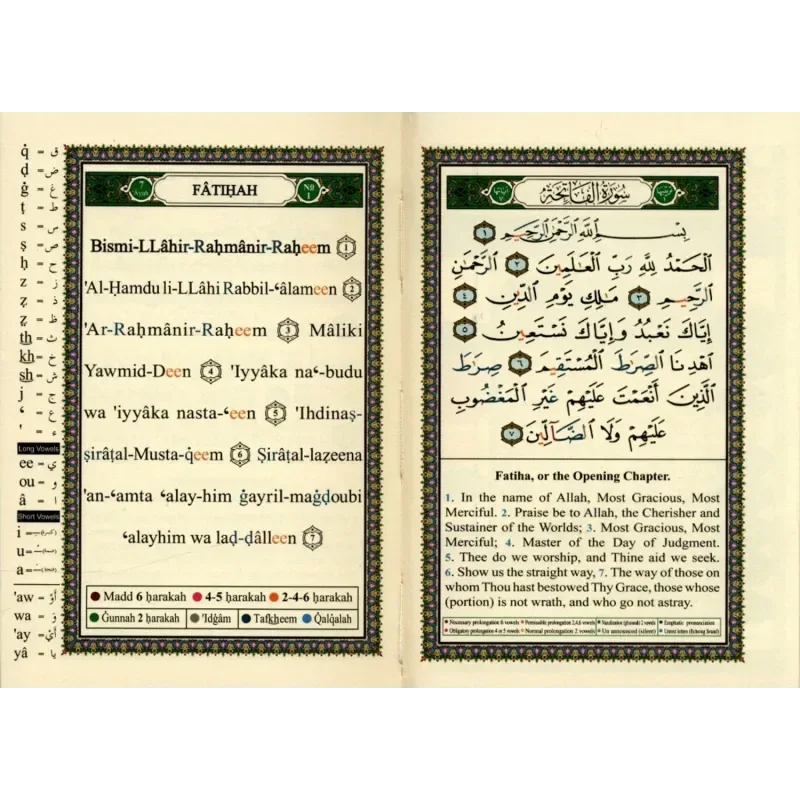 q̇ = ق
ḍ = ض
ġ = غ
ṭ = ط
s = س
ṣ = ص
ḥ = ح
z = ز
ẕ = ذ
ẓ = ظ
th = ث
kh = خ
sh = ش
j = ج
ʿ = ع
' = ء
Long Vowels
ee = ي
ou = و
â = ا
Short Vowels
i =
u =
a =
'aw = أَوْ
wa = وَ
'ay = أَيْ
yâ = يا
7 Ayah
FÂTIḤAH
No 1
Bismi-LLâhir-Raḥmânir-Raḥeem 1
'Al-Ḥamdu li-LLâhi Rabbil-ʿâlameen 2
'Ar-Raḥmânir-Raḥeem 3 Mâliki
Yawmid-Deen 4 'Iyyâka naʿ-budu
wa 'iyyâka nasta-ʿeen 5 'Ihdinaṣ-
ṣirâṭal-Musta-q̇eem 6 Ṣirâṭal-laẕeena
'an-ʿamta ʿalay-him ġayril-maġḍoubi
ʿalayhim wa laḍ-ḍâlleen 7
Madd 6 ḥarakah 4-5 ḥarakah 2-4-6 ḥarakah
Ġunnah 2 ḥarakah 'Idġâm Tafkheem Q̇alq̇alah
سُورَةُ الفَاتِحَةِ
بِسْمِ اللَّهِ الرَّحْمَٰنِ الرَّحِيمِ ١
الْحَمْدُ لِلَّهِ رَبِّ الْعَالَمِينَ ٢ الرَّحْمَٰنِ
الرَّحِيمِ ٣ مَالِكِ يَوْمِ الدِّينِ ٤
إِيَّاكَ نَعْبُدُ وَإِيَّاكَ نَسْتَعِينُ ٥
اهْدِنَا الصِّرَاطَ الْمُسْتَقِيمَ ٦ صِرَاطَ
الَّذِينَ أَنْعَمْتَ عَلَيْهِمْ غَيْرِ الْمَغْضُوبِ
عَلَيْهِمْ وَلَا الضَّالِّينَ ٧
Fatiha, or the Opening Chapter.
1. In the name of Allah, Most Gracious, Most
Merciful. 2. Praise be to Allah, the Cherisher and
Sustainer of the Worlds; 3. Most Gracious, Most
Merciful; 4. Master of the Day of Judgment.
5. Thee do we worship, and Thine aid we seek.
6. Show us the straight way, 7. The way of those on
whom Thou hast bestowed Thy Grace, those whose
(portion) is not wrath, and who go not astray.
Necessary prolongation 6 vowels Permissible prolongation 2,4,6 vowels Nazalization (ghunnah) 2 vowels Emphatic pronunciation
Obligatory prolongation 4 or 5 vowels Normal prolongation 2 vowels Un announced (silent) Unrest letters (Echoing Sound)